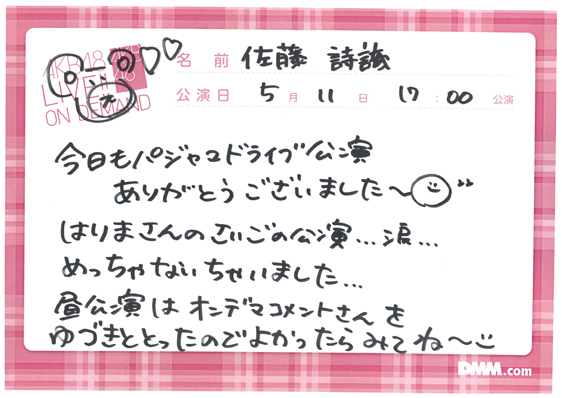 AKB48
LIVE!!
ON DEMAND
名前 佐藤 詩識
公演日 5月11日 17:00 公演
今日もパジャマドライブ公演
ありがとうございました〜
はりまさんのさいごの公演...涙...
めっちゃないちゃいました...
昼公演はオンデマコメントさんを
ゆづきととったのでよかったらみてね〜
DMM.com